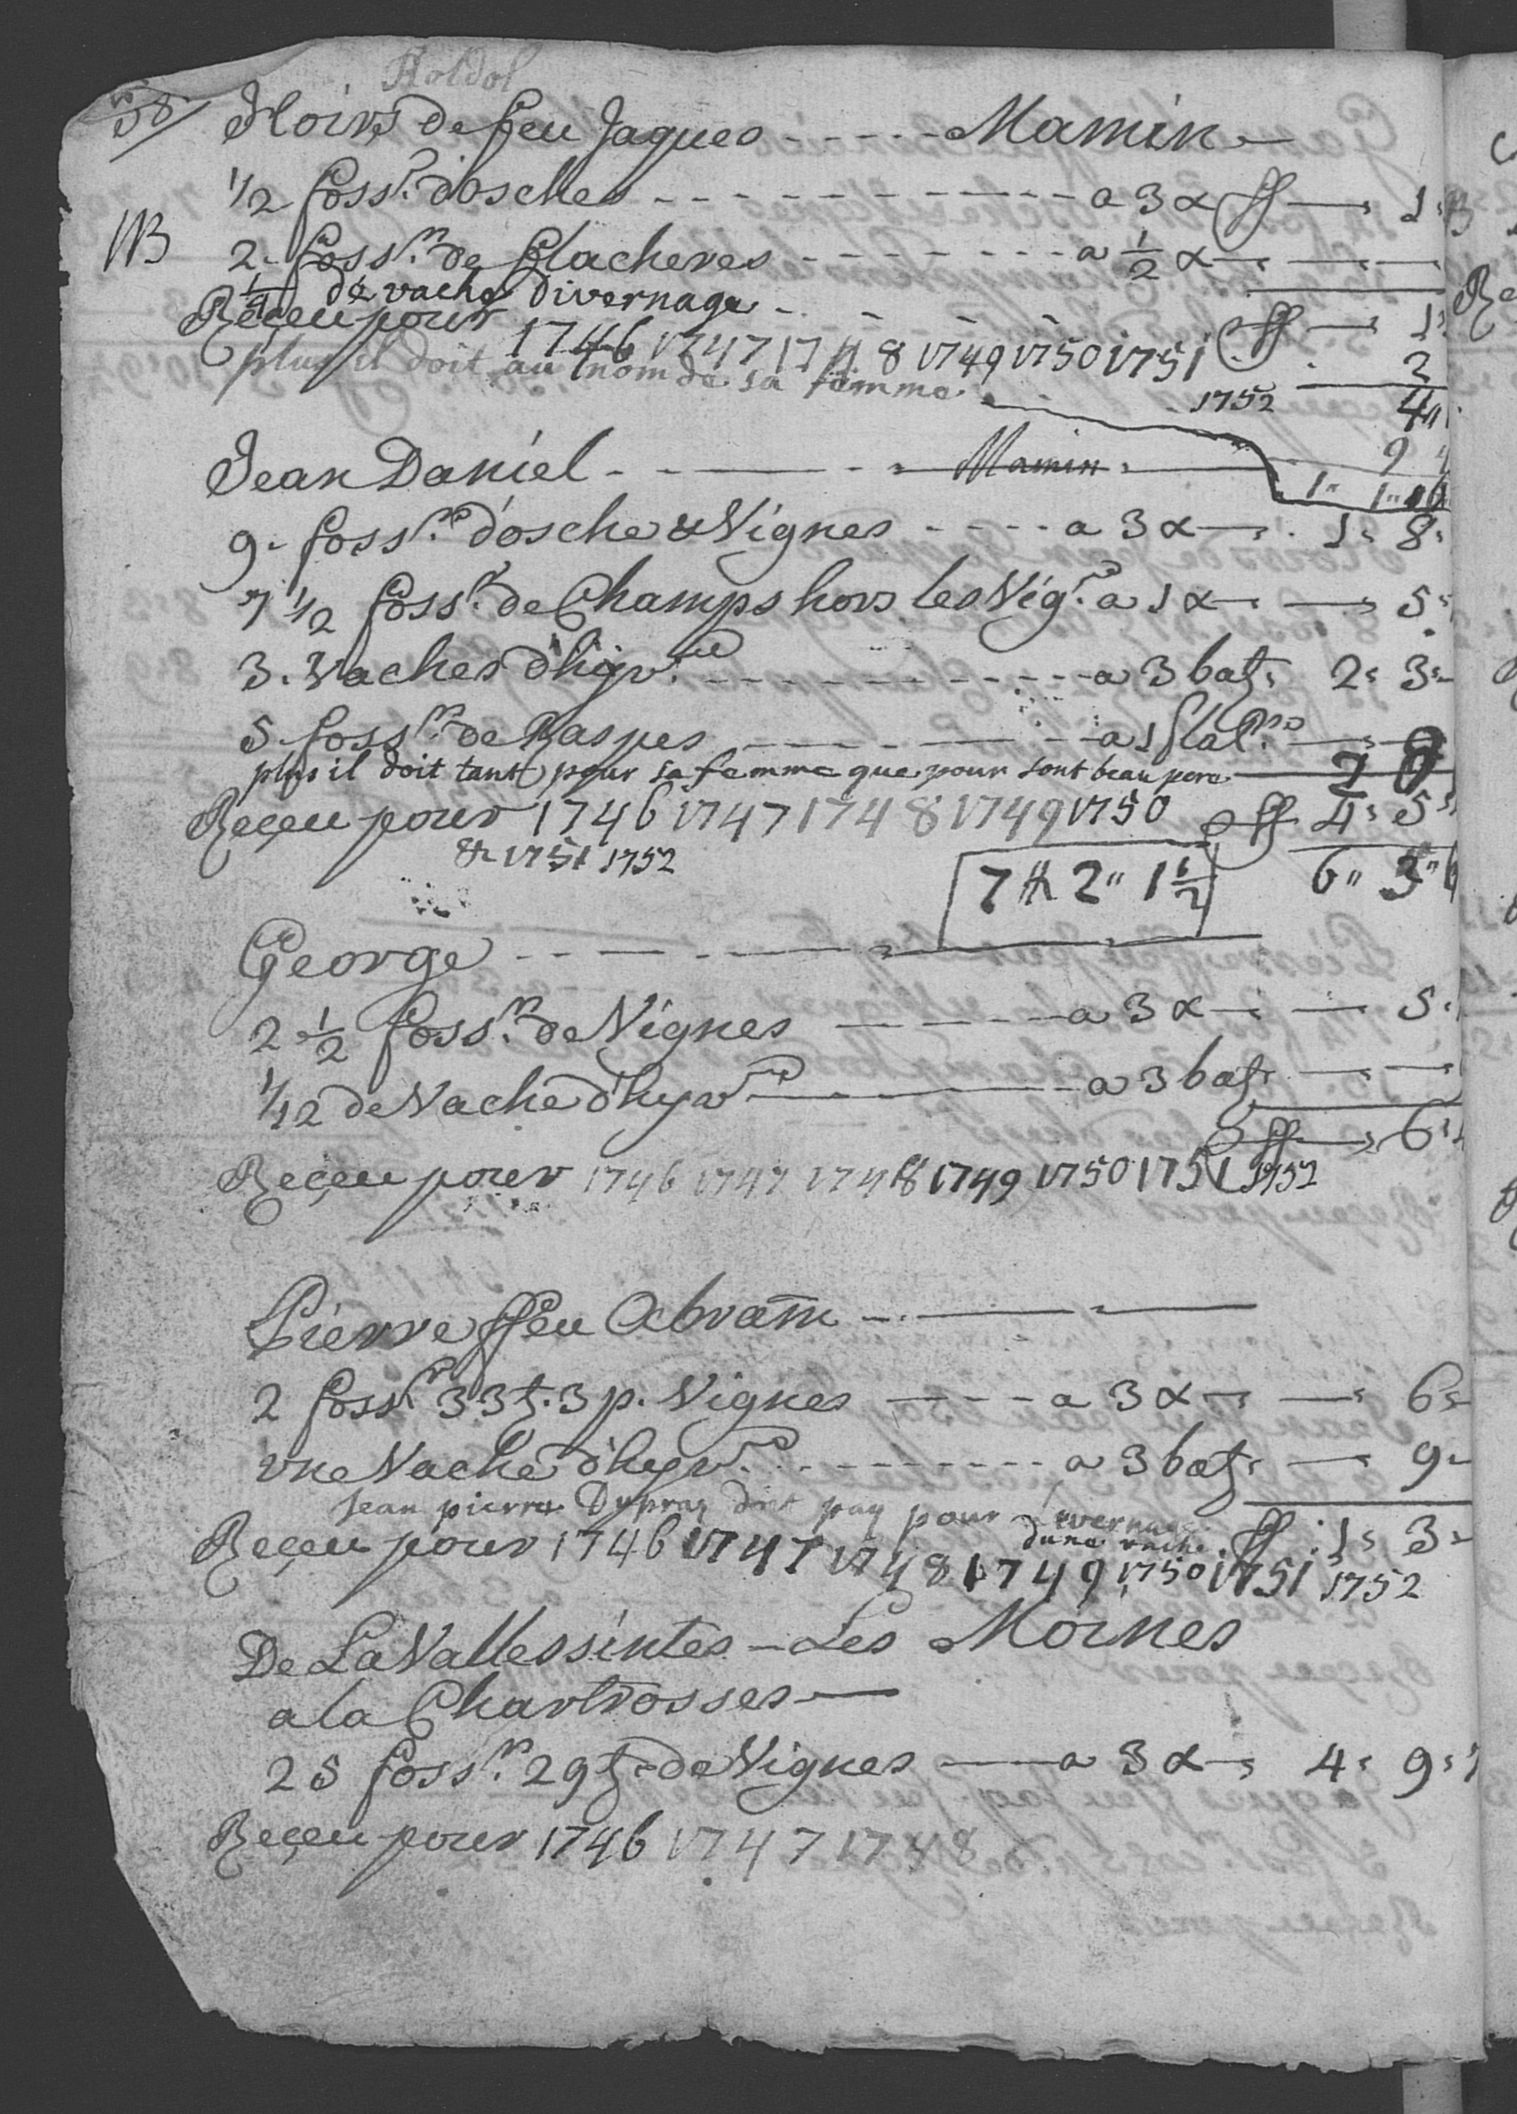 58
Hoirs de feu Jaques - - - - - Mamin
1/2 foss.r d'osches - - - - - - - - - - a 3 x ff — 1
NB 2. foss.rs de Clacheres - - - - - - - a 1/2 x — — —
1/4 de vache divernage - - - - - ff — 1
Reçeu pour 1746 1747 1748 1749 1750 1751 2
plus il doit au nom de sa femme 1752 4
9
Jean Daniel - - — - - Mamin — 1" 1"
9. foss.rs d'osche & Vignes - - - - a 3 x — 1: 8:
7 1/2 foss.rs de Champs hors les Vig.s a 1 x — — 5:
3. Vaches d'hyv.ce - - - - - - - - a 3 batz: 2: 3:
5 foss.rs de Raspes - - - - - a 1
plus il doit tant pour sa femme que pour sont beau pere 2
Reçeu pour 1746 1747 1748 1749 1750 ff 4: 5:
& 1751 1752 7 ff 2" 1 1/2 6" 3"
George - - — - — — —
2 1/2 foss.rs de Vignes — - - — a 3 x — — 5:
1/12 de Vache d'hyv.ce — — — a 3 batz: — —
ff — 6:
Reçeu pour 1746 1747 1748 1749 1750 1751 1752
Pierre ffeu Abram - - — —
2 foss.rs 33 t. 3 p. Vignes — - - - a 3 x — — 6:
vne Vache d'hyv.ce - - - - - - - - a 3 batz: — 9:
Jean pierre Dupraz doit pay pour Livernage
dune vache ff 1: 3:
Reçeu pour 1746 1747 1748 1749 1750 1751 1752
De La Vallessintes — Les Moines
a la Chartrosses —
25 foss.rs 29 t. de Vignes — a 3 x — 4: 9:
Reçeu pour 1746 1747 1748